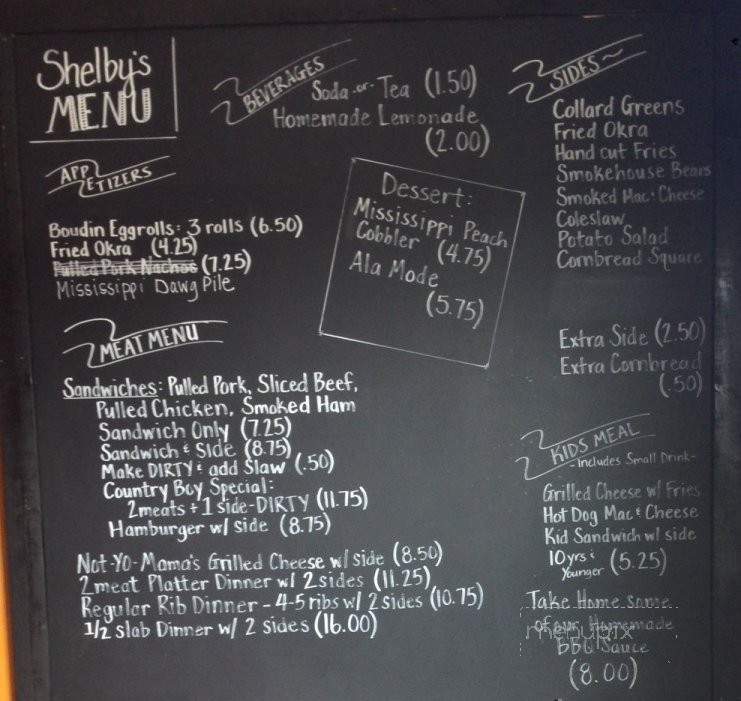 Shelby's
MENU
BEVERAGES
Soda -or- Tea (1.50)
Homemade Lemonade
(2.00)
APP
ETIZERS
Boudin Eggrolls: 3 rolls (6.50)
Fried Okra (4.25)
Pulled Pork Nachos (7.25)
Mississippi Dawg Pile
Dessert:
Mississippi Peach
Cobbler (4.75)
Ala Mode
(5.75)
SIDES~
Collard Greens
Fried Okra
Hand cut Fries
Smokehouse Beans
Smoked Mac & Cheese
Coleslaw
Potato Salad
Cornbread Square
Extra Side (2.50)
Extra Cornbread
(.50)
MEAT MENU
Sandwiches: Pulled Pork, Sliced Beef,
Pulled Chicken, Smoked Ham
Sandwich Only (7.25)
Sandwich & Side (8.75)
Make DIRTY & add Slaw (.50)
Country Boy Special:
2meats + 1 side-DIRTY (11.75)
Hamburger w/ side (8.75)
Not-Yo-Mama's Grilled Cheese w/ side (8.50)
2 meat Platter Dinner w/ 2 sides (11.25)
Regular Rib Dinner - 4-5 ribs w/ 2 sides (10.75)
1/2 slab Dinner w/ 2 sides (16.00)
KIDS MEAL
-Includes Small Drink-
Grilled Cheese w/ Fries
Hot Dog Mac & Cheese
Kid Sandwich w/ side
10yrs &
Younger (5.25)
Take Home some
of our Homemade
BBQ Sauce
(8.00)
menupix